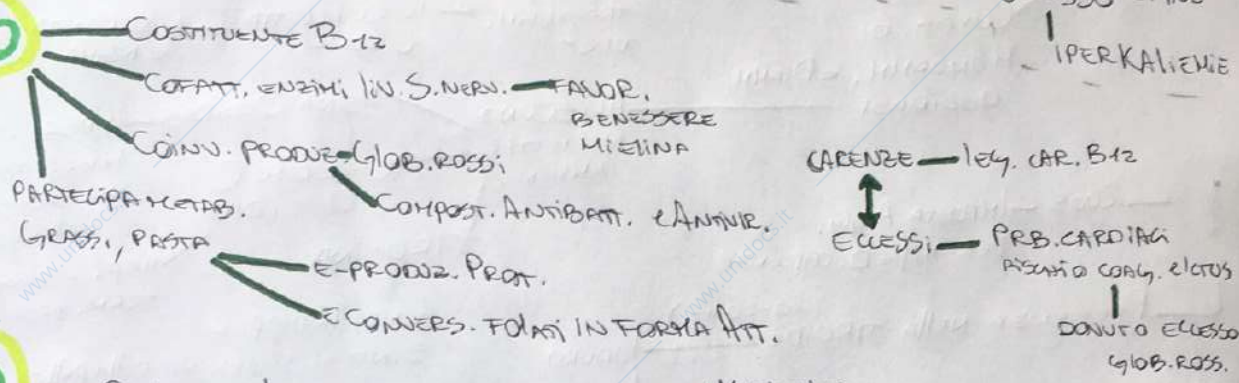 COSTITUENTE B12
COFATT. ENZIMI LIV. S. NERV. - FAVOR.
BENESSERE
MIELINA
COINV. PRODUZ. GLOB. ROSSI
COMPOST. ANTIBATT. E ANTIVIR.
PARTECIPA METAB.
GRASSI, PASTA
E-PRODUZ. PROT.
E CONVERS. FOLATI IN FORMA ATT.
IPERKALIEMIE
CARENZE - LEG. CAR. B12
ECCESSI - PRB. CARDIACI
RISCHIO COAG. E ICTUS
DOVUTO ECCESSO
GLOB. ROSS.
www.unidocs.it